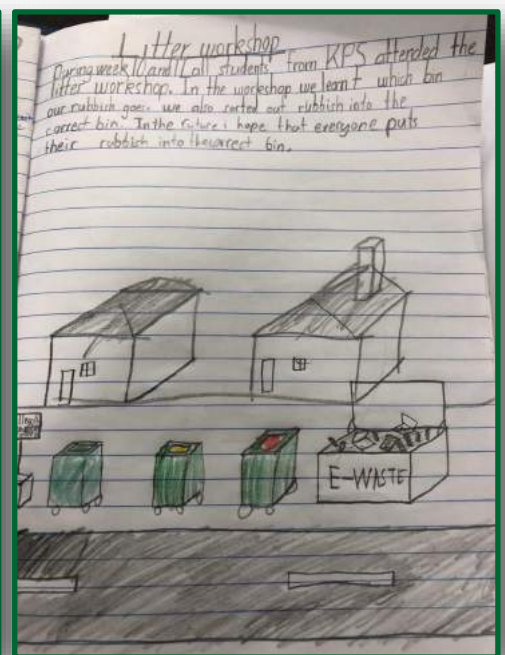 Litter workshop
During week 10 and 11 all students from KPS attended the
litter workshop. In the workshop we learnt which bin
our rubbish goes. we also sorted out rubbish into the
correct bin. In the future i hope that everyone puts
their rubbish into the correct bin.
E-WASTE